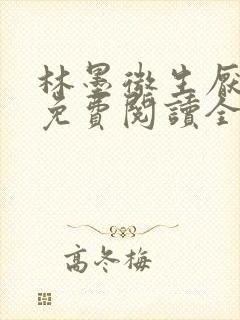 林墨微生厭
免費閱讀全
高冬梅